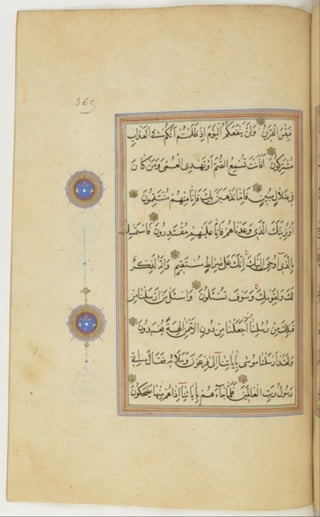 فَبِئْسَ الْقَرِينُ وَلَنْ يَنْفَعَكُمُ الْيَوْمَ إِذْ ظَلَمْتُمْ أَنَّكُمْ فِي الْعَذَابِ
مُشْتَرِكُونَ أَفَأَنْتَ تُسْمِعُ الصُّمَّ أَوْ تَهْدِي الْعُمْيَ وَمَنْ كَانَ
فِي ضَلَالٍ مُبِينٍ فَإِمَّا نَذْهَبَنَّ بِكَ فَإِنَّا مِنْهُمْ مُنْتَقِمُونَ
أَوْ نُرِيَنَّكَ الَّذِي وَعَدْنَاهُمْ فَإِنَّا عَلَيْهِمْ مُقْتَدِرُونَ فَاسْتَمْسِكْ
بِالَّذِي أُوحِيَ إِلَيْكَ إِنَّكَ عَلَى صِرَاطٍ مُسْتَقِيمٍ وَإِنَّهُ لَذِكْرٌ
لَكَ وَلِقَوْمِكَ وَسَوْفَ تُسْئَلُونَ وَاسْئَلْ مَنْ أَرْسَلْنَا مِنْ
قَبْلِكَ مِنْ رُسُلِنَا أَجَعَلْنَا مِنْ دُونِ الرَّحْمٰنِ آلِهَةً يُعْبَدُونَ
وَلَقَدْ أَرْسَلْنَا مُوسَى بِآيَاتِنَا إِلَى فِرْعَوْنَ وَمَلَائِهِ فَقَالَ إِنِّي
رَسُولُ رَبِّ الْعَالَمِينَ فَلَمَّا جَاءَهُمْ بِآيَاتِنَا إِذَا هُمْ مِنْهَا يَضْحَكُونَ